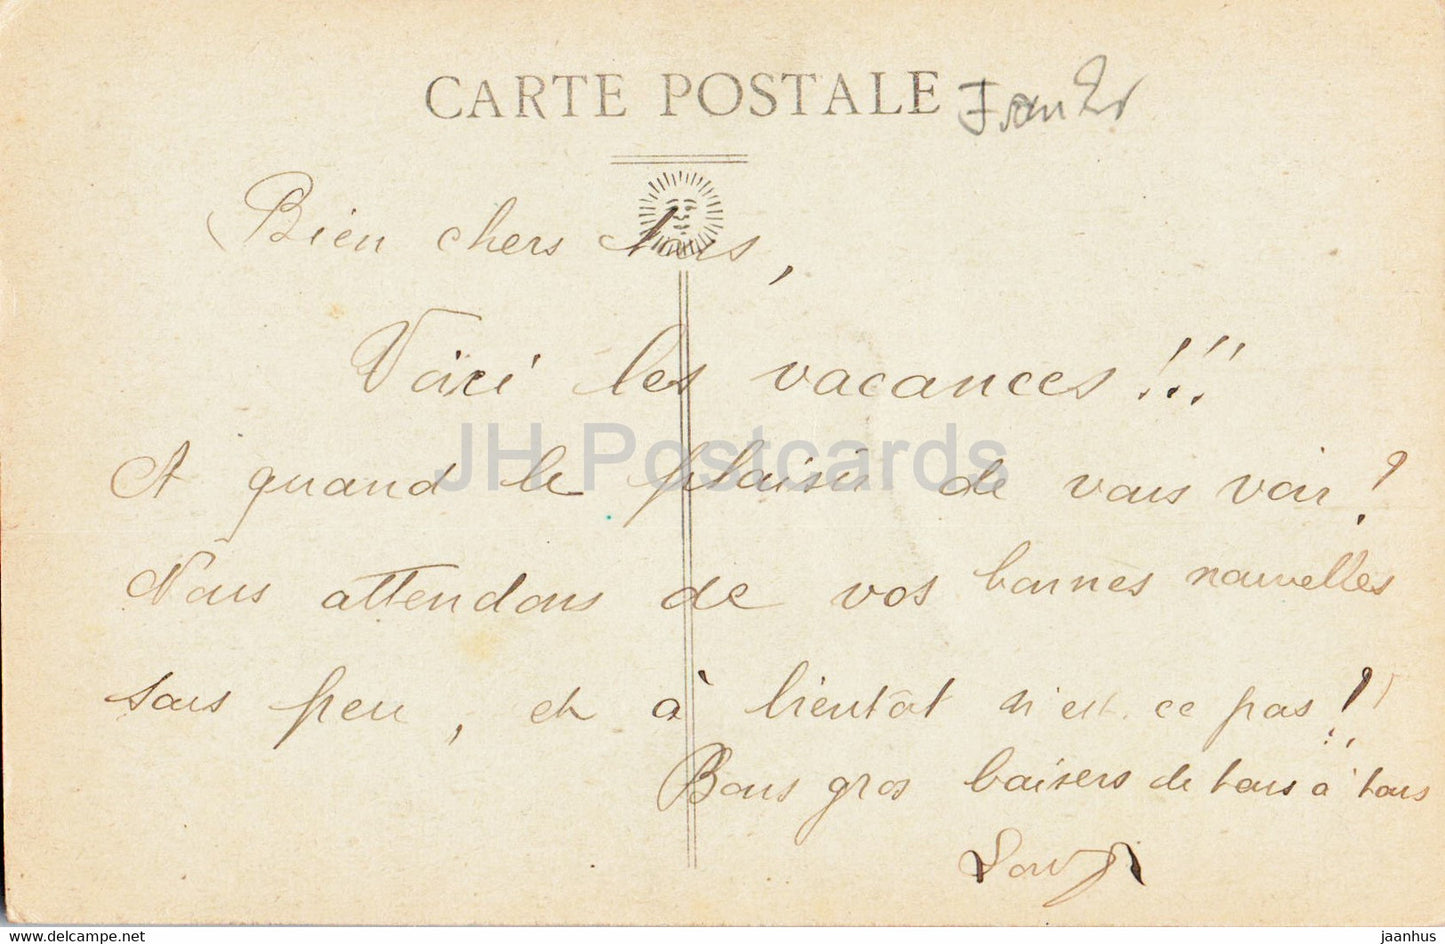 CARTE POSTALE
Bien chers tous,
Voici les vacances !!!
A quand le plaisir de vous voir ?
Nous attendons de vos bonnes nouvelles
sous peu, et à bientôt n'est-ce pas !!
Bons gros baisers de tous à tous
JH Postcards
www.delcampe.net
jaanhus